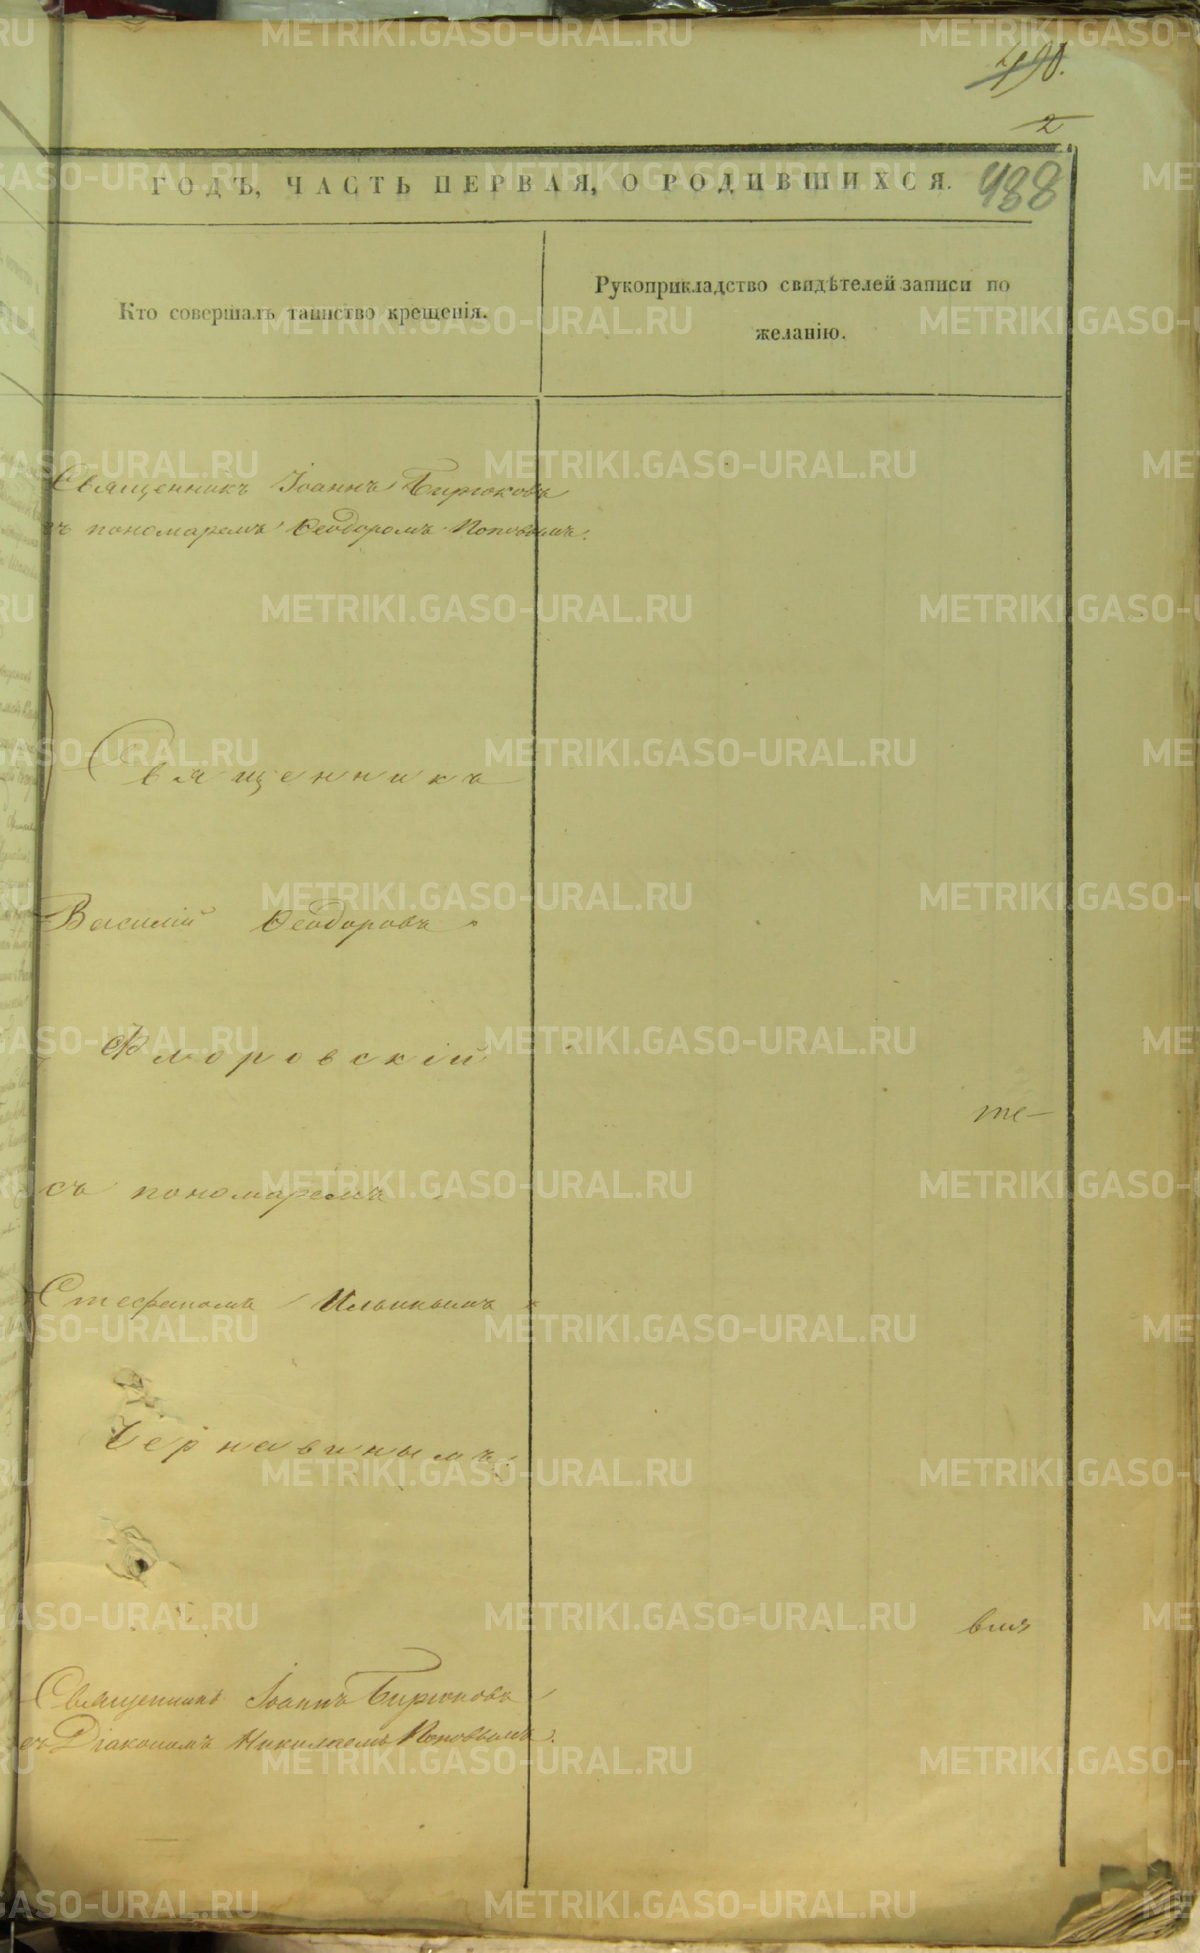 490.
2
ГОДЪ, ЧАСТЬ ПЕРВАЯ, О РОДИВШИХСЯ.
488
Кто совершалъ таинство крещенія.
Рукоприкладство свидѣтелей записи по
желанію.
Священникъ Іоаннъ Бирюковъ
съ пономаремъ Ѳеодоромъ Поповымъ.
Священникъ
Василій Ѳеодоровъ
Флоровскій
те-
съ пономаремъ
Стефаномъ Ильинымъ
Чернавинымъ.
вля
Священникъ Іоаннъ Бирюковъ
съ Діакономъ Николаемъ Поповымъ.
METRIKI.GASO-URAL.RU